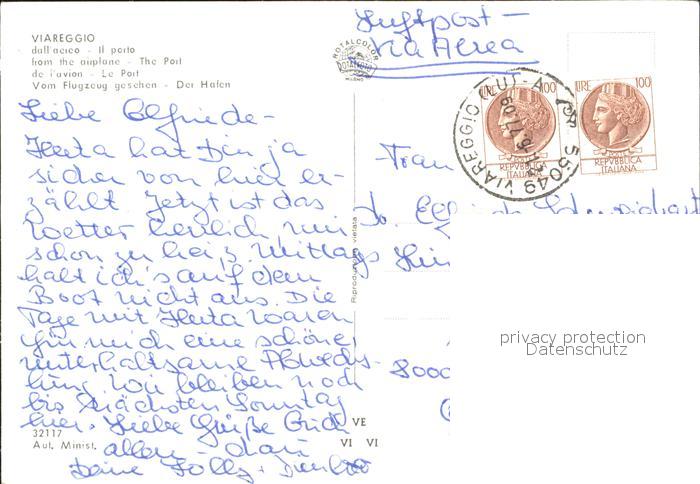 VIAREGGIO
dall'aereo - Il porto
from the airplane - The Port
de l'avion - Le Port
Vom Flugzeug gesehen - Der Hafen
ROTALCOLOR
ROTALFOTO
MILANO
Luftpost -
Via Aerea
LIRE 100
LIRE 100
REPVBBLICA
ITALIANA
REPVBBLICA
ITALIANA
55049 VIAREGGIO (LU) - A
Liebe Elfriede -
Herta hat Dir ja
sicher von hier er-
zählt. Jetzt ist das
Wetter herrlich, nur
schon zu heiß. Mittags
halt ich's auf dem
Boot nicht aus. Die
Tage mit Herta waren
für mich eine schöne,
unterhaltsame Abwechs-
lung. Wir bleiben noch
bis nächsten Sonntag
hier. Liebe Grüße Euch
allen - Dani
Deine Lolly +
Riproduzione vietata
Frau
Dr. Elfriede
8000
32117
Aut. Minist.
VE
VI VI
privacy protection
Datenschutz